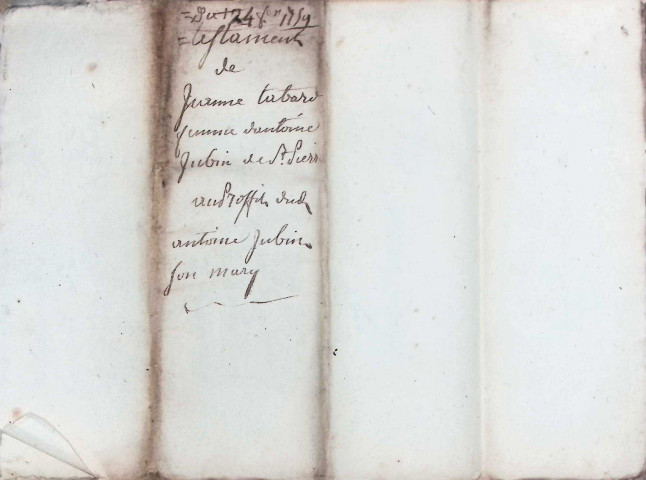 24 8bre 1759
testament
de
Jeanne tabard
femme dantoine
Jubin de St. pierre
au proffit dud
antoine Jubin
son mary